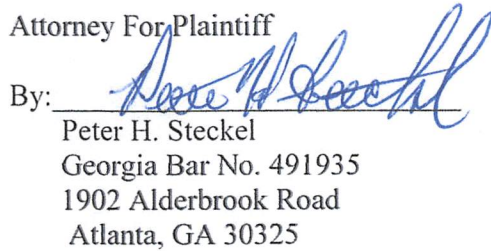 Attorney For Plaintiff
By:
Peter H. Steckel
Georgia Bar No. 491935
1902 Alderbrook Road
Atlanta, GA 30325